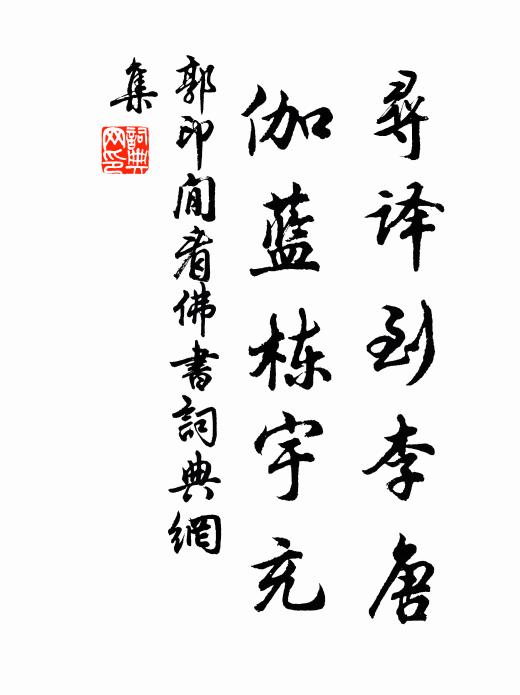 尋译到李唐
伽蓝栋宇充
郭印閒看佛書詞典網
集
詞典网印